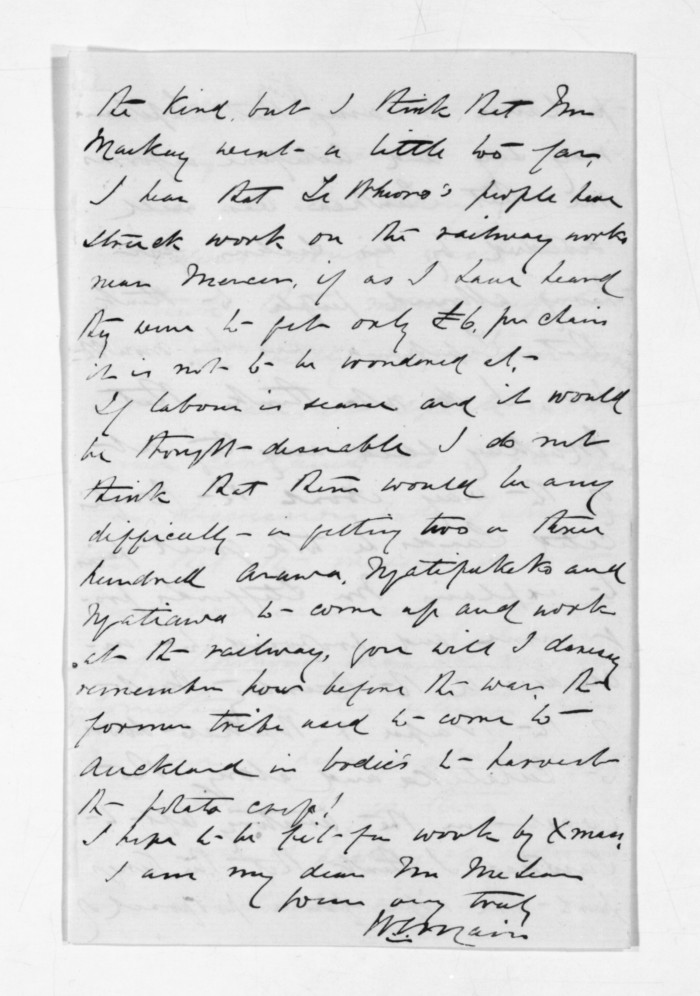 the kind, but I think that Mr
Mackay went a little too far,
I hear that Te Wheoro's people have
struck work on the railway works
near Mercer, if as I have heard
they were to get only £6. per chain
it is not to be wondered at,-
If labour is scarce and it would
be thought desirable I do not
think that there would be any
difficulty in getting two or three
hundred Arawa, Ngatipukeko and
Ngatiawa to come up and work
at the railway, you will I daresay
remember how before the war, the
former tribe used to come to
Auckland in bodies to harvest
the potato crop!
I hope to be fit for work by Xmas,
I am my dear Mr McLean
yours very truly
W G Mair